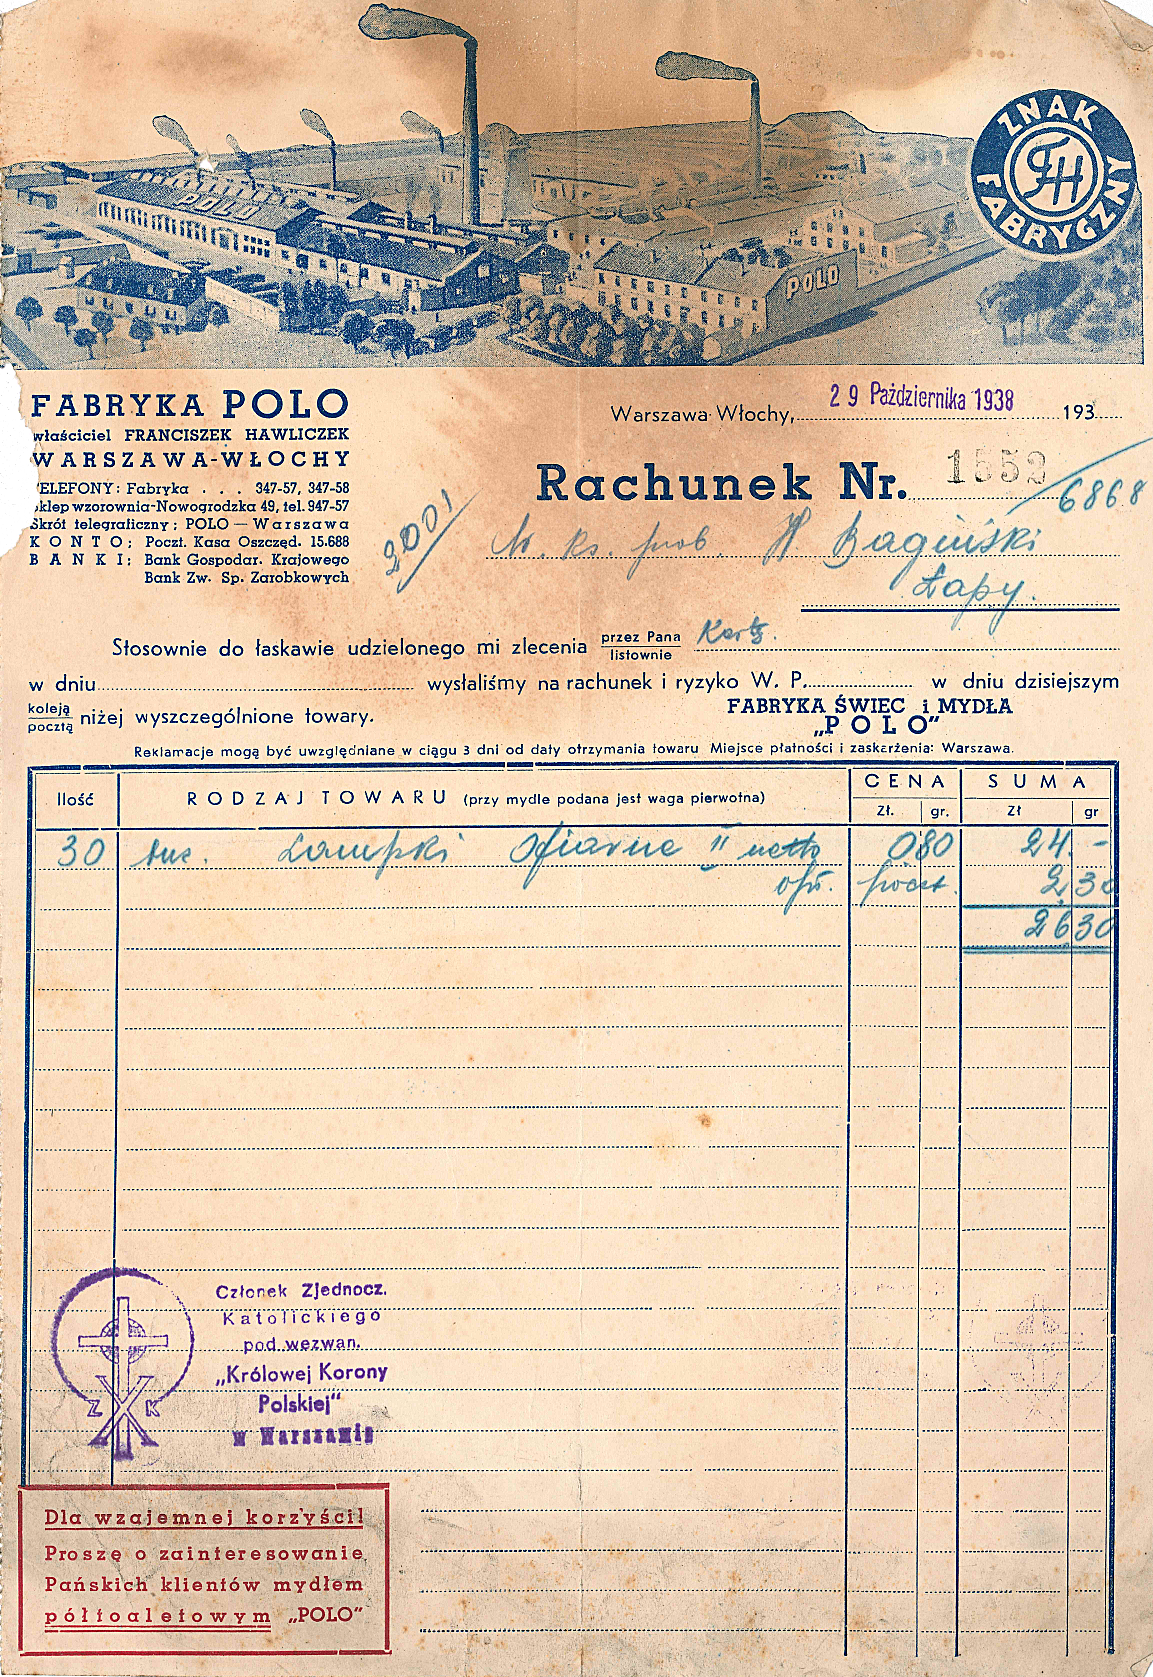 POLO
POLO
ZNAK FABRYCZNY
FH
FABRYKA POLO
właściciel FRANCISZEK HAWLICZEK
WARSZAWA-WŁOCHY
TELEFONY: Fabryka . . . 347-57, 347-58
Sklep wzorownia-Nowogrodzka 49, tel. 947-57
Skrót telegraficzny: POLO — Warszawa
KONTO: Poczt. Kasa Oszczęd. 15.688
BANKI: Bank Gospodar. Krajowego
Bank Zw. Sp. Zarobkowych
Warszawa-Włochy, 29 Października 1938 193
Rachunek Nr. 1552
6868
2001
W. Ks. prob. H Bagiński
Łapy.
Stosownie do łaskawie udzielonego mi zlecenia przez Pana
listownie
w dniu wysłaliśmy na rachunek i ryzyko W. P. w dniu dzisiejszym
koleją
pocztą niżej wyszczególnione towary.
FABRYKA ŚWIEC i MYDŁA
„POLO”
Reklamacje mogą być uwzględniane w ciągu 3 dni od daty otrzymania towaru Miejsce płatności i zaskarżenia: Warszawa.
Ilość RODZAJ TOWARU (przy mydle podana jest waga pierwotna) CENA SUMA
Zł. gr. Zł gr
30 tuz. Lampki Ofiarne II netto 0 80 24. -
opł. poczt. 2,30
26 30
Członek Zjednocz.
Katolickiego
pod wezwan.
„Królowej Korony
Polskiej”
w Warszawie
Z K
Dla wzajemnej korzyści!
Proszę o zainteresowanie
Pańskich klientów mydłem
półtoaletowym „POLO”